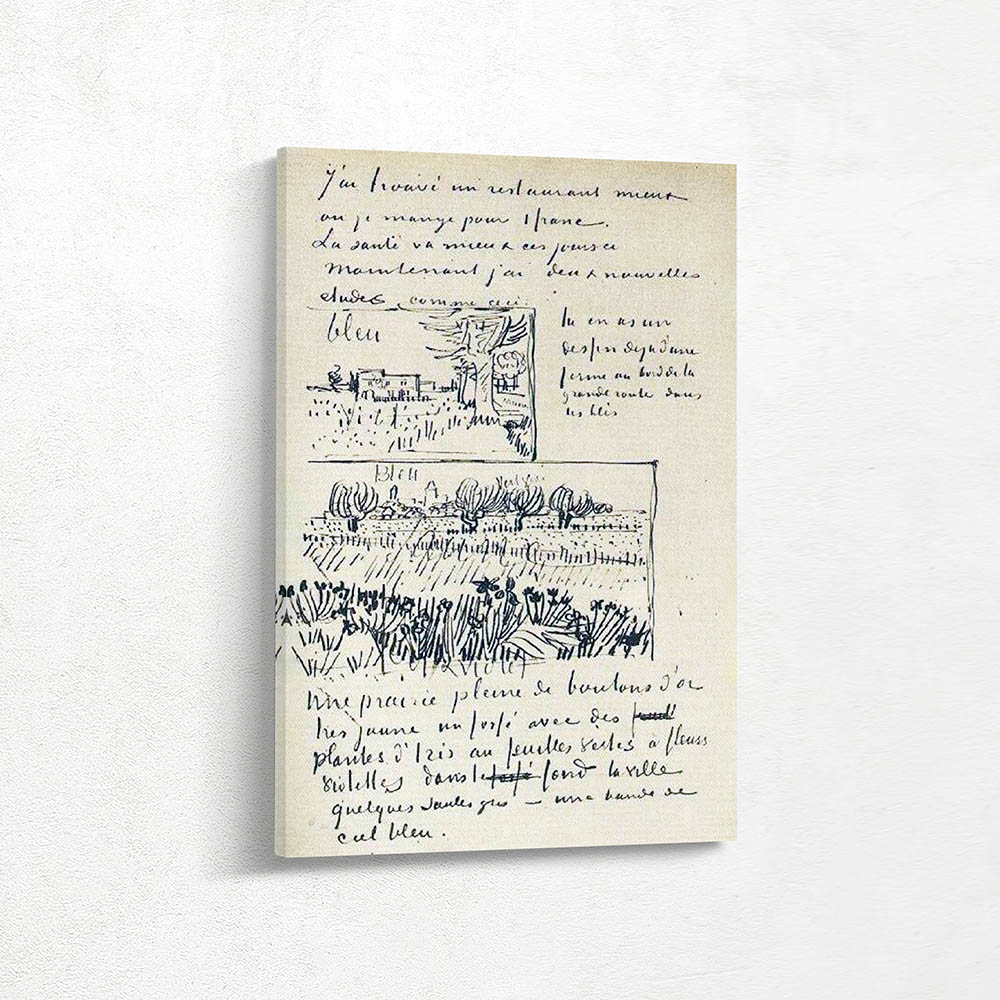 J'ai trouvé un restaurant mieux
ou je mange pour 1 franc.
La santé va mieux ces jours ci
Maintenant j'ai deux nouvelles
etudes comme ceci
bleu
tu en as un
dessin deja d'une
ferme au bord de la
grande route dans
les blés
Bleu
Une prairie pleine de boutons d'or
très jaune un fossé avec des
plantes d'Iris au feuilles vertes à fleurs
violettes dans le fossé fond la ville
quelques saules gris – une bande de
ciel bleu.